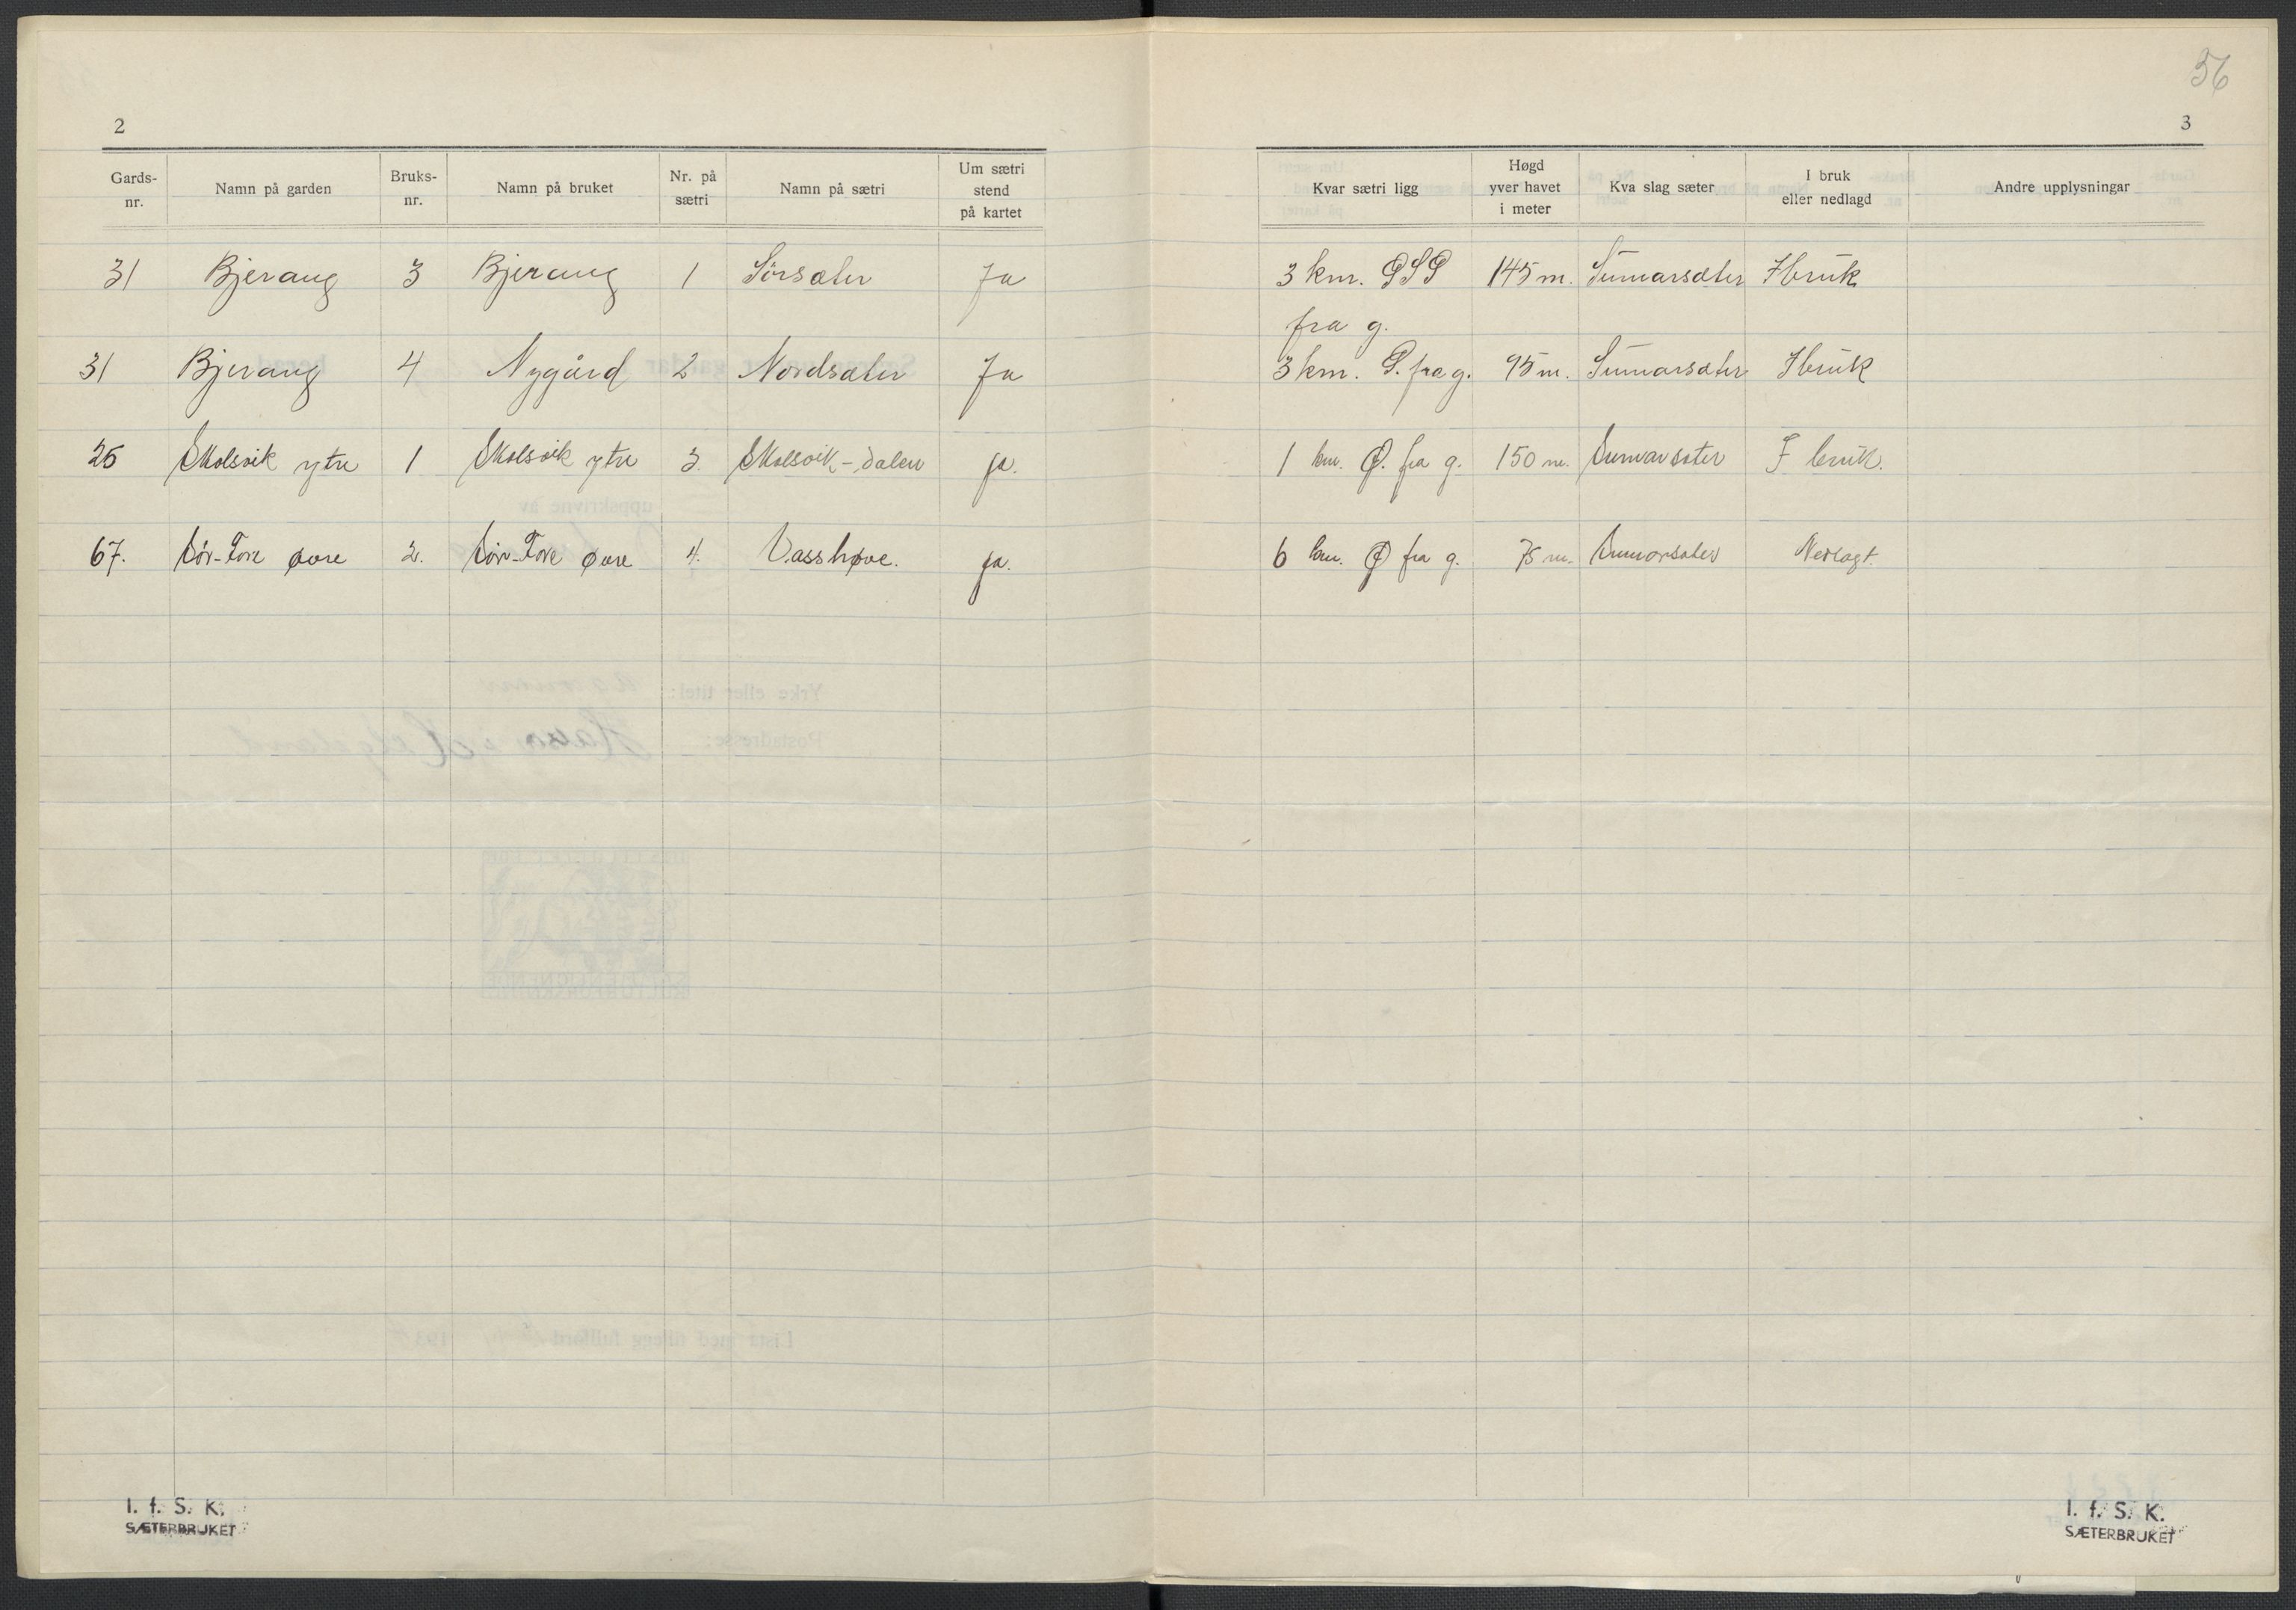 36
2
3
Gards-nr. Namn på garden Bruks-nr. Namn på bruket Nr. på sætri Namn på sætri Um sætri stend på kartet Kvar sætri ligg Høgd yver havet i meter Kva slag sæter I bruk eller nedlagd Andre upplysningar
31 Bjerang 3 Bjerang 1 Sörsæter Ja 3 km. ØSØ 145 m. Sumarsæter I bruk
fra g.
31 Bjerang 4 Nygård 2 Nordsæter Ja 3 km. Ø. fra g. 95 m. Sumarsæter I bruk
26 Skolsvik ytre 1 Skolsvik ytre 3. Skolsvik-dalen ja. 1 km. Ø. fra g. 150 m. Sumarsæter I bruk.
67. Sör-Fore øvre 2. Sör-Fore øvre 4. Vasshøve. ja. 6 km. Ø fra g. 75 m. Sumarsæter Nedlagt.
I. f. S. K.
SÆTERBRUKET
I. f. S. K.
SÆTERBRUKET